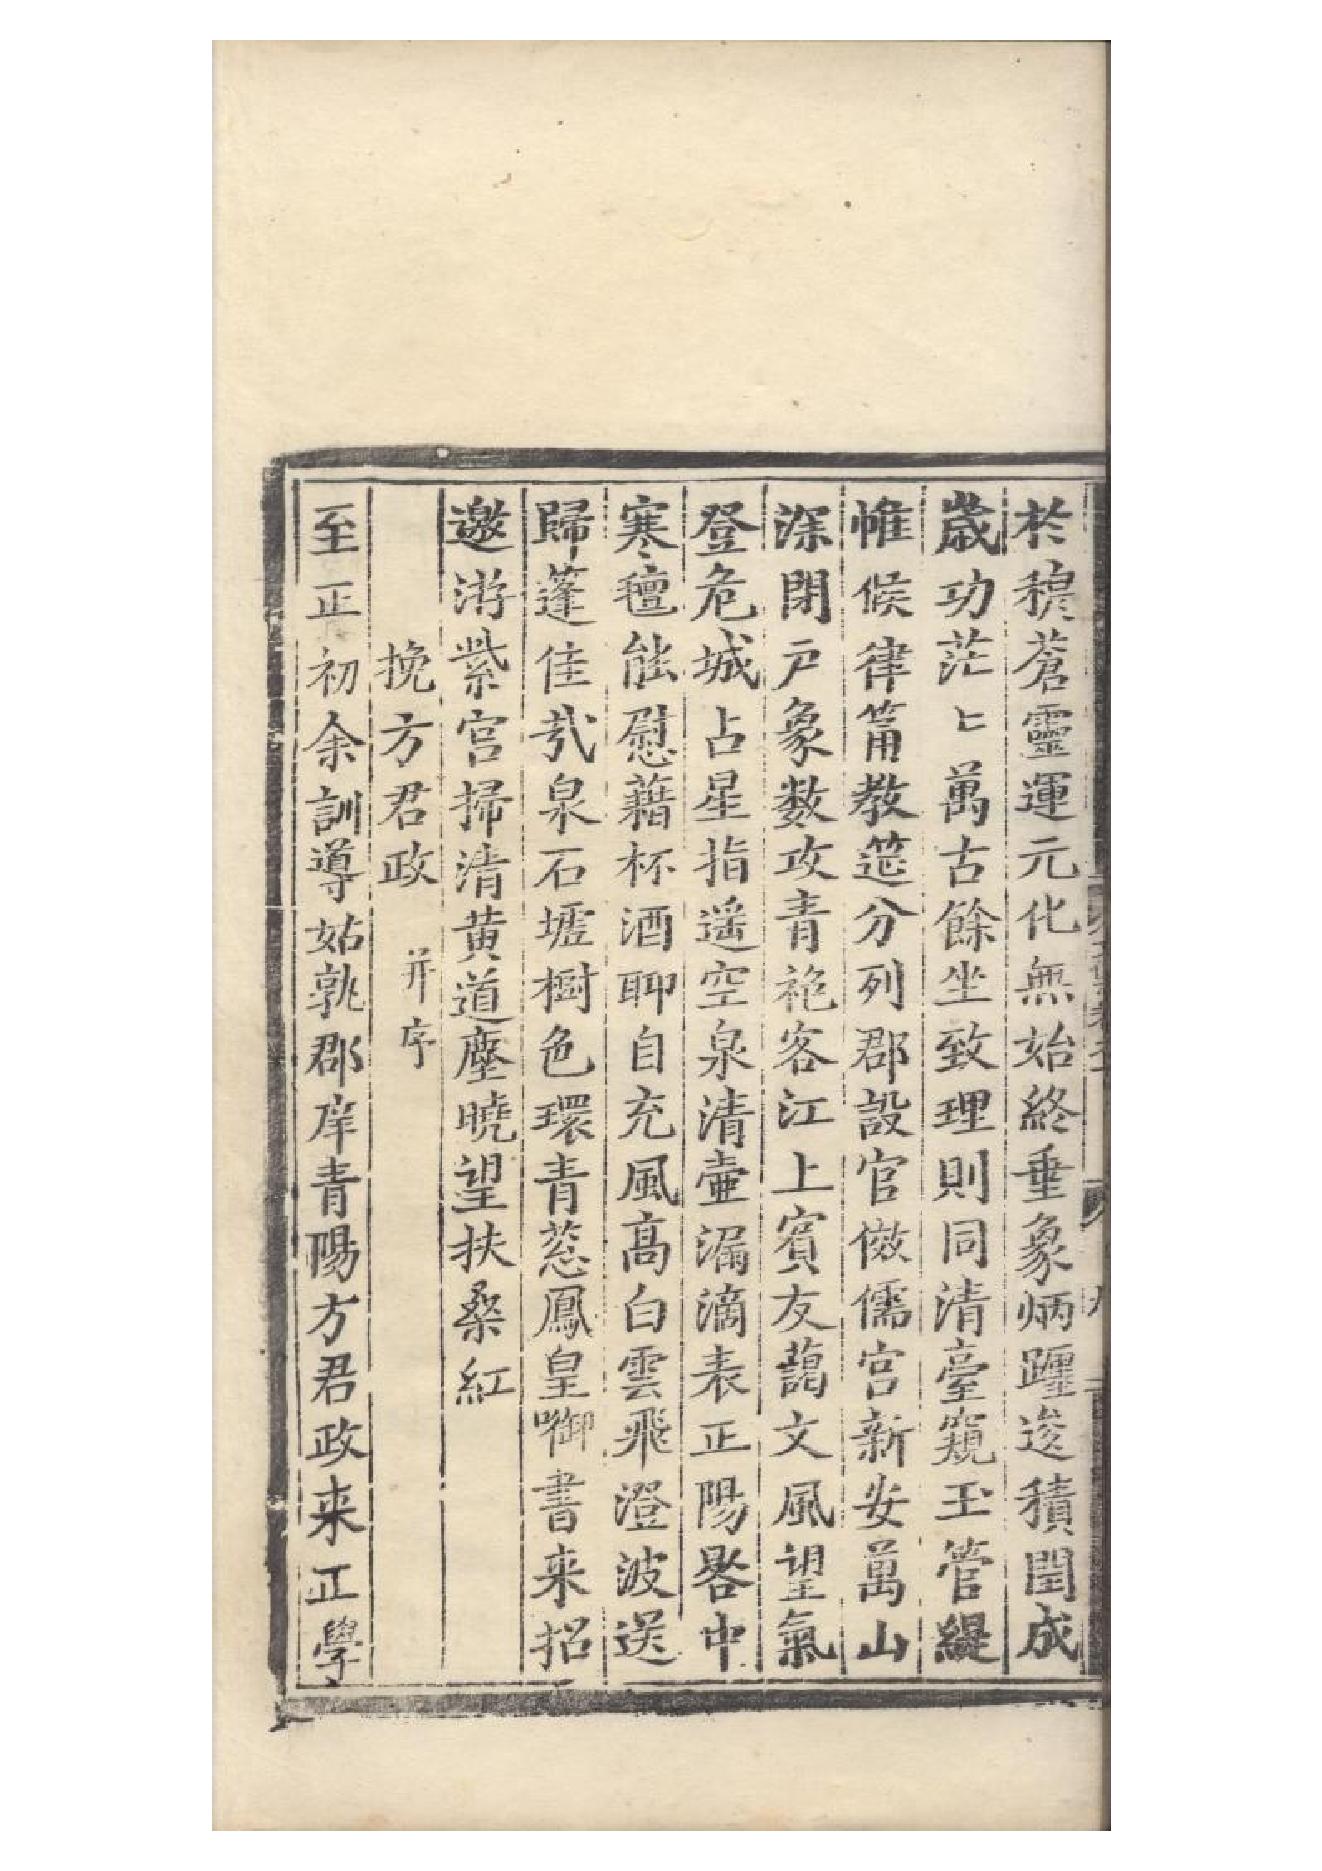 於穆蒼靈運元化無始終垂象炳躔逡積閏成
歲功茫〻萬古餘坐致理則同清臺窺玉管緹
帷候律筩教莚分列郡設官倣儒宫新安萬山
深閉户象數攻青袍客江上賓友藹文風望氣
登危城占星指遥空泉清壷漏滴表正陽晷中
寒氊能慰藉杯酒聊自充風髙白雲飛澄波送
歸蓬佳㢤泉石墟樹色環青葱鳳皇啣書来招
邀游紫宫掃清黄道塵曉望扶桒紅
挽方君政 并序
至正初余訓導姑孰郡庠青陽方君政来正學